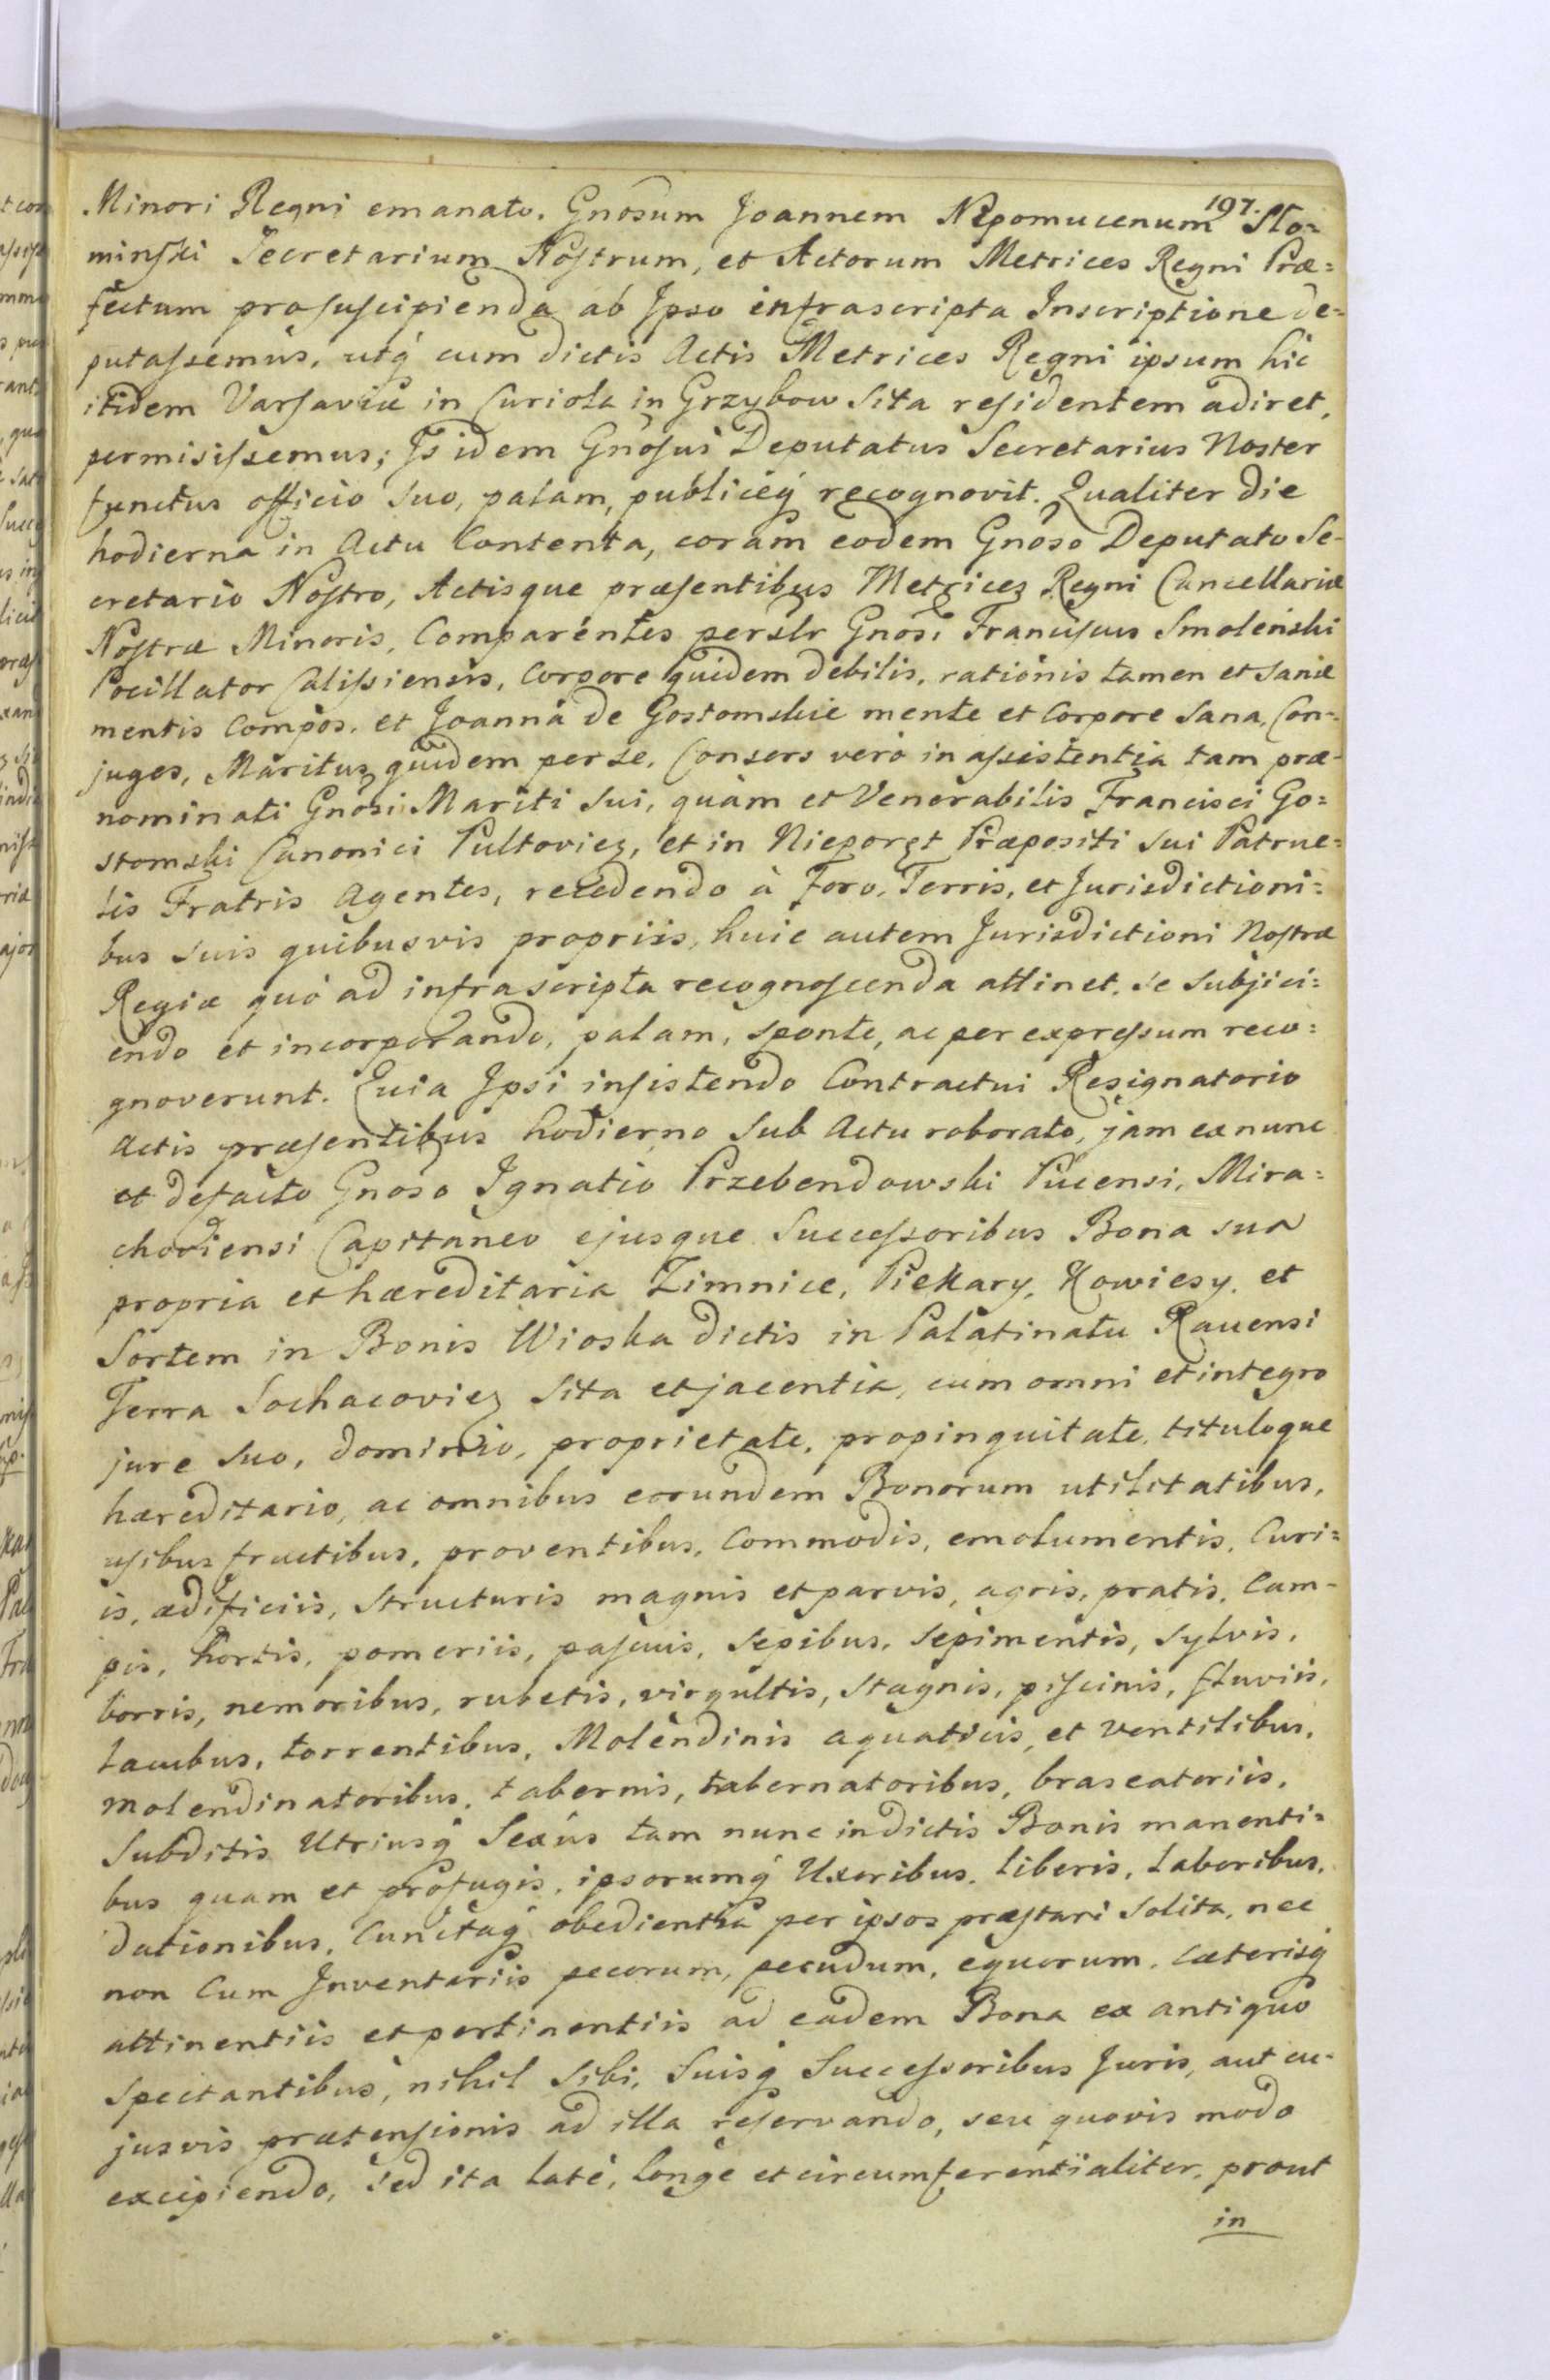 197.
Minori Regni emanato. Gnosum Joannem Nepomucenum Sło=
minski Secretarium Nostrum, et Actorum Metrices Regni Præ=
fectum pro suscipienda ab Ipso infrascripta Inscriptione de=
putassemus, utq́ cum dictis Actis Metrices Regni ipsum hic
itidem Varsaviæ in Curiola in Grzybow sita residentem adiret,
permisissemus; Is idem Gnosus Deputatus Secretarius Noster
functus officio suo, palam, publiceq́ recognovit. Qualiter die
hodierna in Actu Contenta, coram eodem Gnoso Deputato Se-
cretario Nostro, Actisque præsentibus Metrices Regni Cancellariæ
Nostræ Minoris, Comparentes perslr Gnosi Franciscus Smolenski
Pocillator Calissiensis, Corpore quidem debilis, rationis tamen et sanæ
mentis Compos, et Joanna de Gostomskie mente et Corpore Sana, Con=
juges, Maritus quidem per se, Consors vero in assistentia tam præ-
nominati Gnosi Mariti sui, quàm et Venerabilis Francisci Go=
stomski Canonici Pultoviez, et in Nieporęt Præpositi sui Patrue=
lis Fratris Agentes, recedendo à Foro, Terris, et Jurisdictioni=
bus suis quibusvis propriis, huic autem Jurisdictioni Nostræ
Regiæ quò ad infrascripta recognoscenda attinet, se subjici=
endo et incorporando, palam, sponte, ac per expressum reco=
gnoverunt. Quia Ipsi insistendo Contractui Resignatorio
Actis præsentibus hodierno sub Actu roborato, jam ex nunc
et de facto Gnoso Ignatio Przebendowski Pucensi, Mira=
choviensi Capitaneo ejusque Successoribus Bona sua
propria et hæreditaria Zimnice, Piekary, Kowiesy, et
Sortem in Bonis Wioska dictis in Palatinatu Ravensi
Terra Sochacoviez sita et jacentia, cum omni et integro
jure suo, dominio, proprietate, propinquitate, tituloque
hæreditario, ac omnibus eorundem Bonorum utilitatibus,
usibus fructibus, proventibus, Commodis, emolumentis, Curi=
is, ædificiis, structuris magnis et parvis, agris, pratis, Cam-
pis, hortis, pomeriis, pascuis, sepibus, sepimentis, sylvis,
borris, nemoribus, rubetis, virgultis, stagnis, piscinis, fluviis,
lacubus, torrentibus, Molendinis aquaticis, et ventilibus,
molendinatoribus, tabernis, tabernatoribus, braseatoriis,
Subditis Utriusq́ Sexûs tam nunc in dictis Bonis manenti=
bus quam et profugis, ipsorumq́ Uxoribus, liberis, laboribus,
dationibus, Cunctaq́ obedientia per ipsos præstari solita, nec
non Cum Inventariis pecorum, pecudum, equorum, Cæterisq́
attinentiis et pertinentiis ad eadem Bona ex antiquo
spectantibus, nihil sibi, suisq́ Successoribus Juris, aut cu-
jusvis prætensionis ad illa reservando, seu quovis modo
excipiendo, sed ita latè, longè et circumferentialiter, prout
in